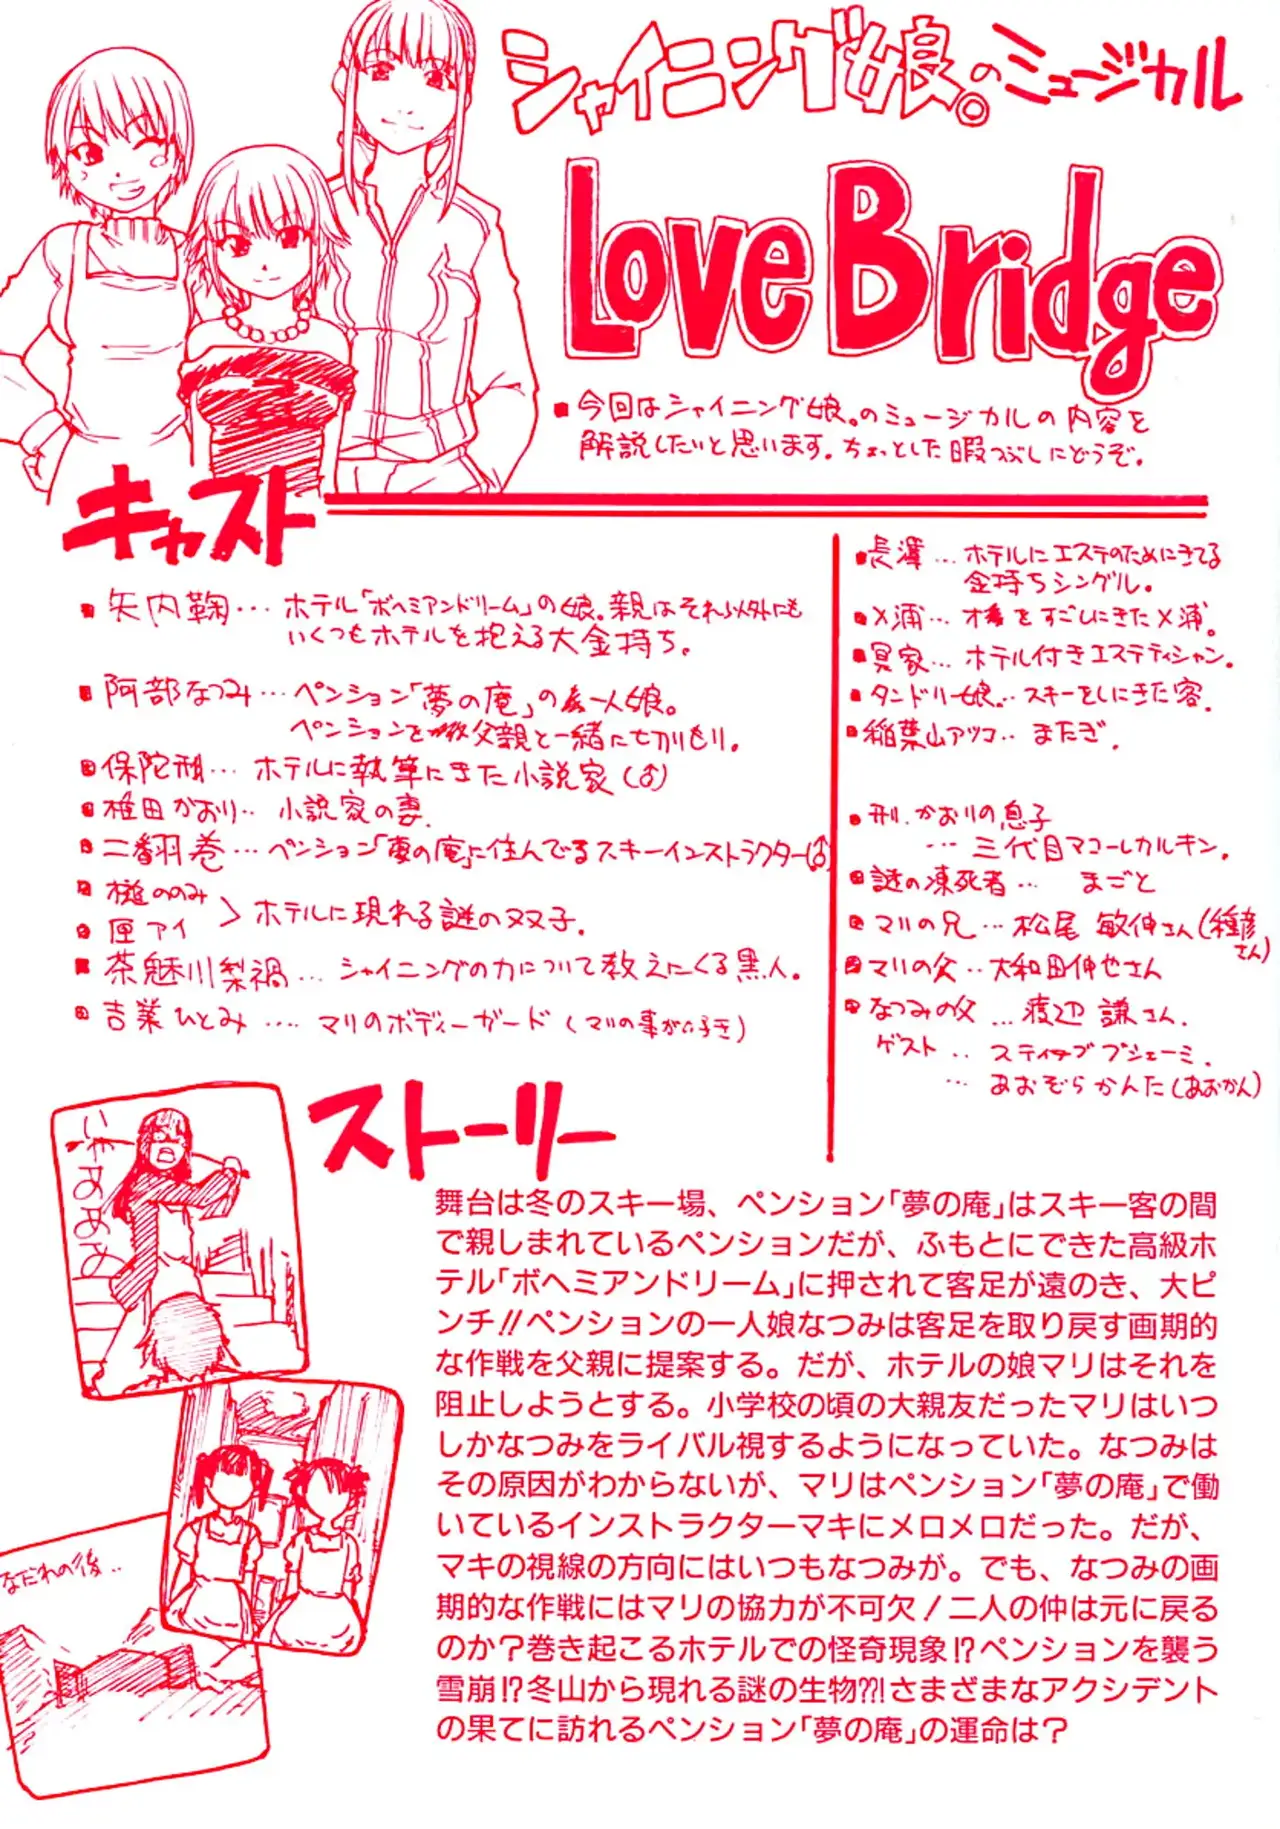 シャイニング娘。のミュージカル
Love Bridge
■今回はシャイニング娘。のミュージカルの内容を
解説したいと思います。ちょっとした暇つぶしにどうぞ。
キャスト
■矢内鞠…ホテル「ボヘミアンドリーム」の娘。親はそれ以外にも
いくつもホテルを抱える大金持ち。
■阿部なつみ…ペンション「夢の庵」の一人娘。
ペンションを父親と一緒に切りもり。
■保陀刑…ホテルに執筆にきた小説家(♂)
■椎田かおり…小説家の妻。
■二翻巻…ペンション「夢の庵」に住んでるスキーインストラクター(♂)
■槌ののみ
■匣アイ
>ホテルに現れる謎の双子。
■茶魅川梨禍…シャイニングの力について教えにくる黒人。
■吉業ひとみ…マリのボディーガード(マリの事が好き)
■長澤…ホテルにエステのためにきてる
金持ちシングル。
■メ浦…オ をすごしにきたメ浦。
■冥家…ホテル付きエステティシャン。
■タンドリー娘…スキーをしにきた客。
■稲葉山アツコ…またぎ。
■刑、かおりの息子
…三代目マコーレカルキン。
■謎の凍死者…まごと
■マリの兄…松尾敏伸さん(種彦さん)
■マリの父…大和田伸也さん
■なつみの父…渡辺謙さん。
ゲスト…スティーブブシェーミ。
…あおぞらかんた(あおかん)
いやあああ
なだれの後…
ストーリー
舞台は冬のスキー場、ペンション「夢の庵」はスキー客の間
で親しまれているペンションだが、ふもとにできた高級ホ
テル「ボヘミアンドリーム」に押されて客足が遠のき、大ピ
ンチ!!ペンションの一人娘なつみは客足を取り戻す画期的
な作戦を父親に提案する。だが、ホテルの娘マリはそれを
阻止しようとする。小学校の頃の大親友だったマリはいつ
しかなつみをライバル視するようになっていた。なつみは
その原因がわからないが、マリはペンション「夢の庵」で働
いているインストラクターマキにメロメロだった。だが、
マキの視線の方向にはいつもなつみが。でも、なつみの画
期的な作戦にはマリの協力が不可欠!二人の仲は元に戻る
のか?巻き起こるホテルでの怪奇現象!?ペンションを襲う
雪崩!?冬山から現れる謎の生物?!さまざまなアクシデント
の果てに訪れるペンション「夢の庵」の運命は?